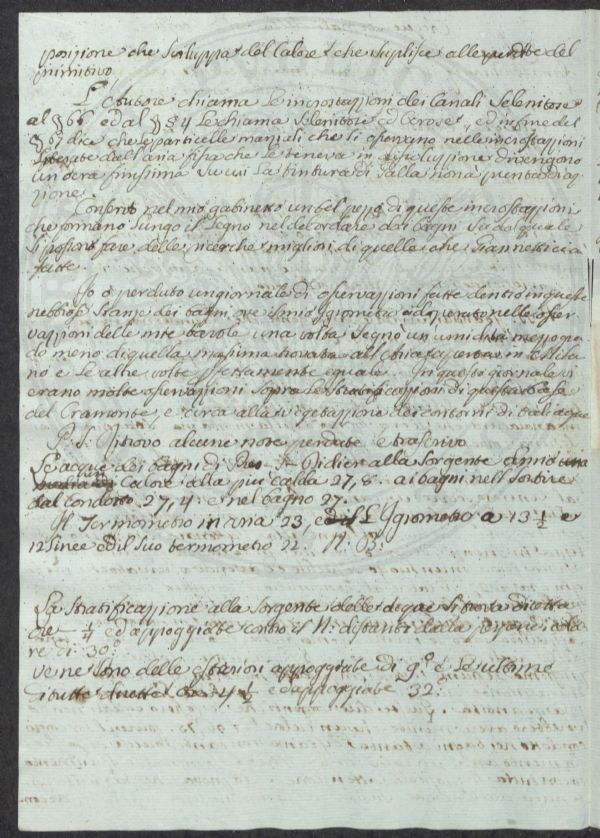 posizione che sviluppa del Calore che suplisce alle perdite del
primitivo
L'Autore chiama le incrostazioni dei Canali Selenitose
al § 66 ed al § 54 le chiama Selenitose ed Ocrose, ed infine del
§ 67 dice che le particelle marziali che si osservano nelle incrostazioni
liberate dall'aria fissa che le teneva in dissoluzione divengono
un ocra finissima su cui la tintura di Galla non à
zione.
Conservo nel mio gabinetto un bel pezzo di queste incrostazioni
che formano lungo il Segno nel dei bagni su del quale
si possono fare delle ricerche migliori di quelle che Giannetti ci à
fatte.
Io ò perduto un giornale di osservazioni fatte dentro in queste
stanze dei bagni, ove il mio igrometro adoperato nelle osser
vazioni delle mie tavole una volta segnò un umidità mezzo gra
do meno di quella massima trovata in
no e le altre volte perfettamente eguale. In questo giornale vi
erano molte osservazioni sopra le stratificazioni di questa base
del Cramonte, e circa alla vegetazione dei contorni di tali acque
P. S. Ritrovo alcune note perdute e trascrivo
Le acque dei bagni di Pre S. Didier alla Sorgente anno una
Calore alla più calda 27, 8. ai bagni nell'Sortire
dal condotto 27, 4: e nel bagno 27.
Il Termometro in aria 23, ed L'Igrometro a 13 ½ e
12 linee ed il suo termometro 22. N: B:
La Stratificazione alla Sorgente delle acque si trova diretta
ore ¼ ed appoggiate contro il N: distanti dalla
re di 30°.
ve ne sono delle appoggiate di 9.° e le ultime
di tutte dirette Ore 4 ½ ed appoggiate 32.